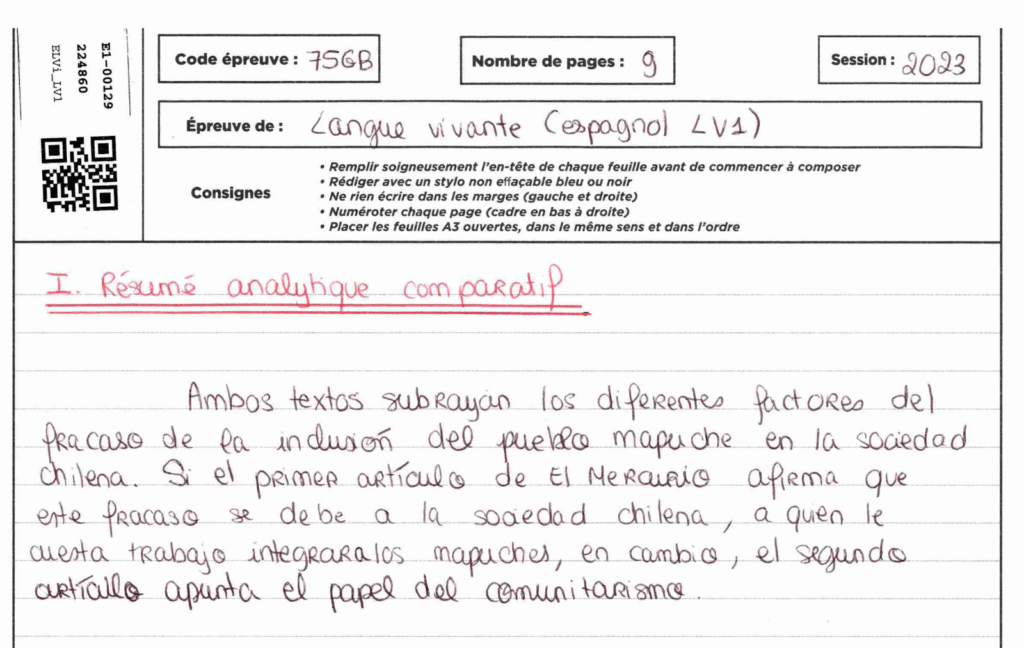 E1-00129
224860
ELVi_LV1
Code épreuve : 75GB
Nombre de pages : 9
Session : 2023
Épreuve de : Langue vivante (espagnol LV1)
Consignes
• Remplir soigneusement l'en-tête de chaque feuille avant de commencer à composer
• Rédiger avec un stylo non effaçable bleu ou noir
• Ne rien écrire dans les marges (gauche et droite)
• Numéroter chaque page (cadre en bas à droite)
• Placer les feuilles A3 ouvertes, dans le même sens et dans l'ordre
I. Résumé analytique comparatif
Ambos textos subrayan los diferentes factores del
fracaso de la inclusión del pueblo mapuche en la sociedad
chilena. Si el primer artículo de El Mercurio afirma que
este fracaso se debe a la sociedad chilena, a quien le
cuesta trabajo integrar a los mapuches, en cambio, el segundo
artículo apunta el papel del comunitarismo.